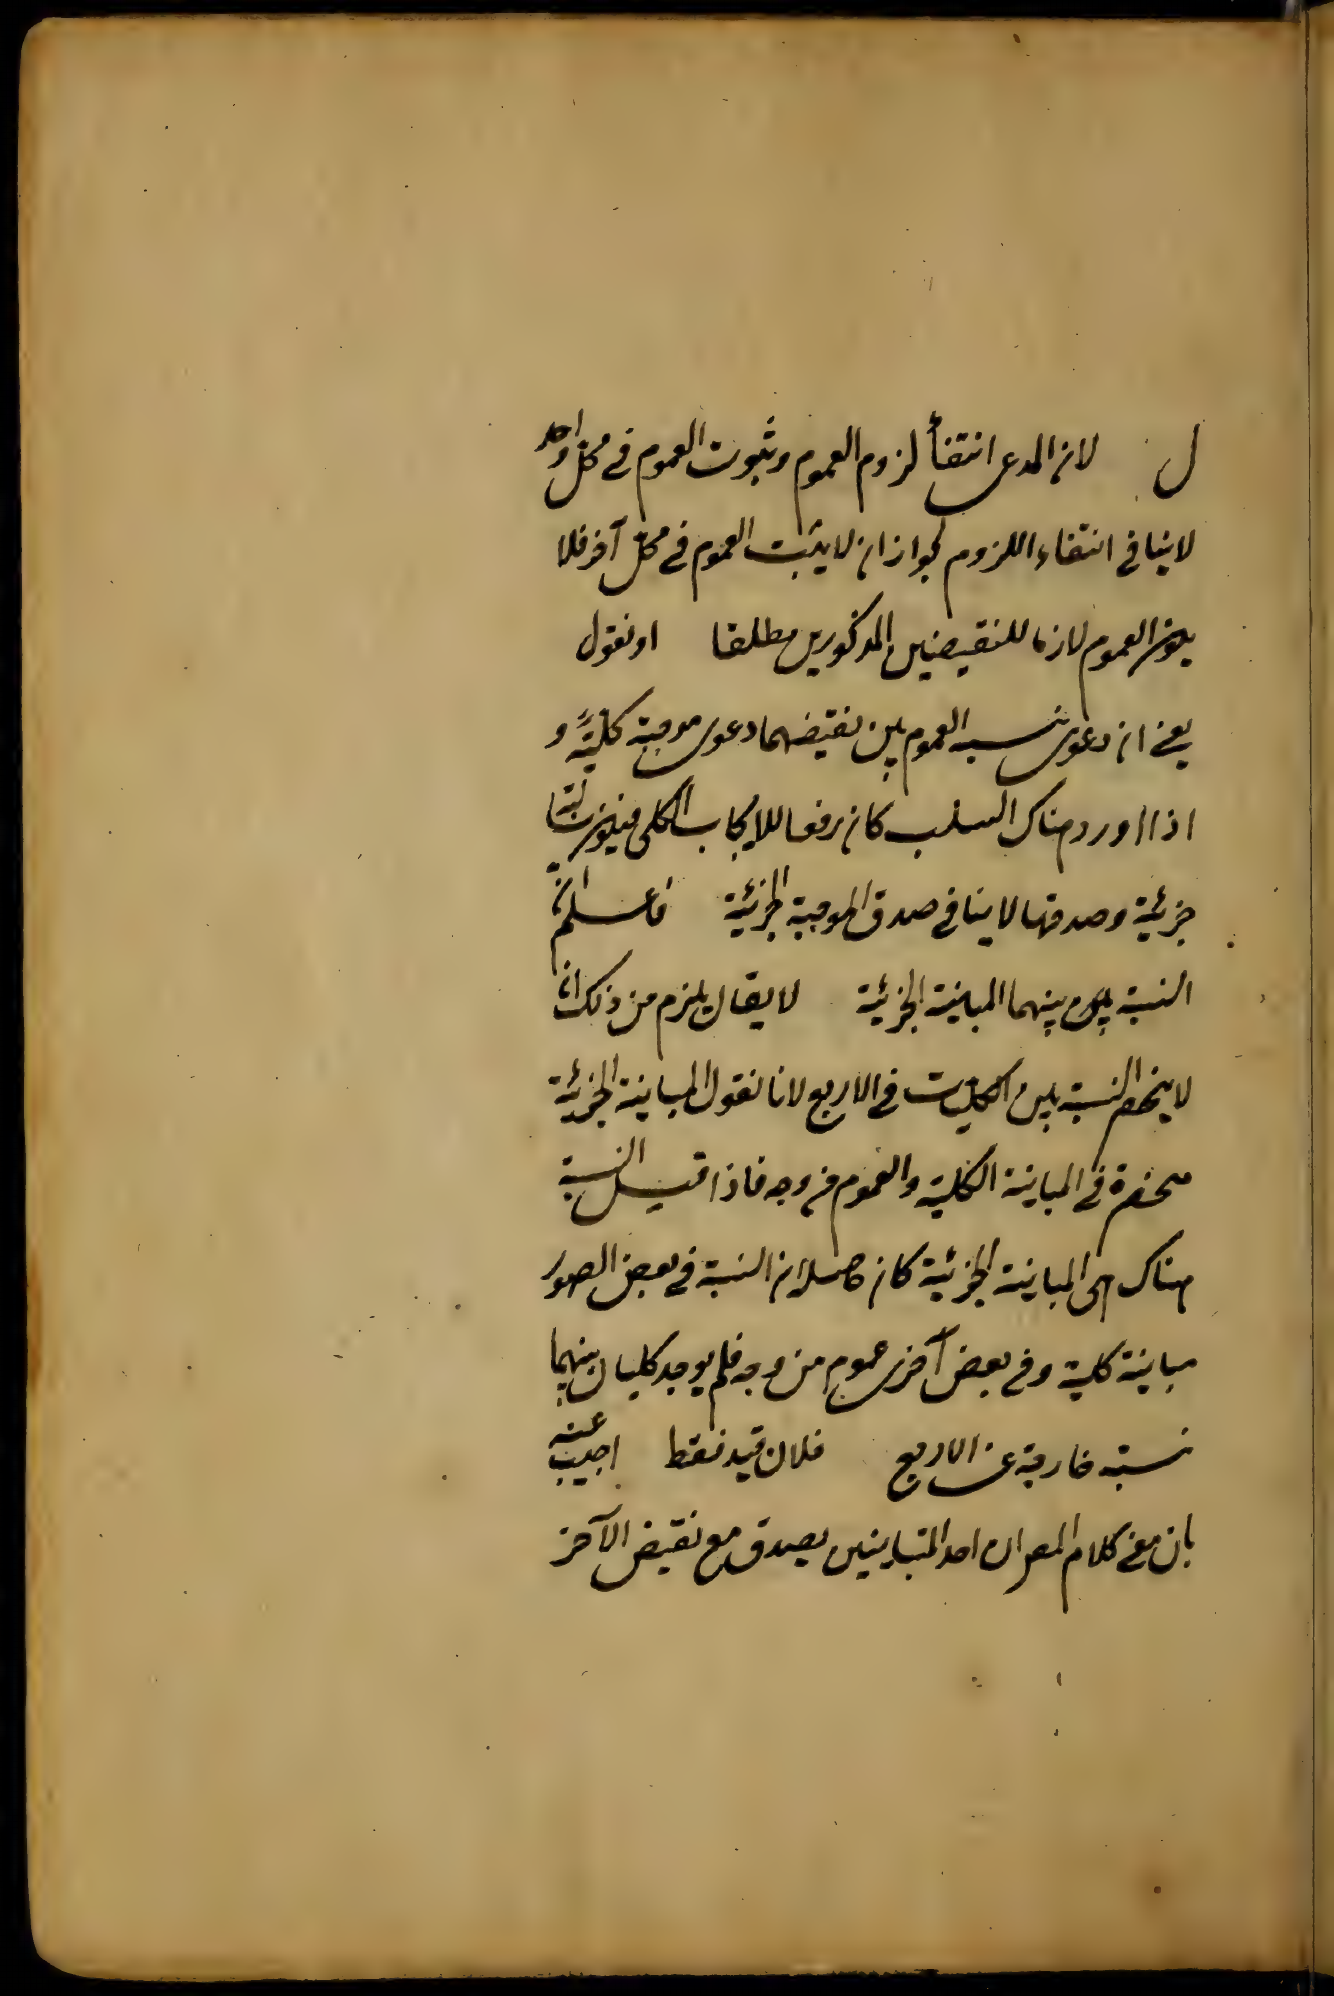 ل لان المدعى انتفأ لزوم العموم وثبوت العموم في محل واحد
لا ينافى انتفاء اللزوم لجواز ان لا يثبت العموم في محل آخر فلا
يكون العموم لازما للنقيضين المذكورين مطلقا او نقول
يعنى ان دعوى نسبه العموم بين نقيضهما دعوى موجبة كليّةً و
اذا اورد هناك السلب كان رفعا للايجاب الكلى فيكون سالبة
جزئية وصدقها لا ينافى صدق الموجبة الجزئية فاعلم ان
النسبة بينهما المباينة الجزئية لا يقال يلزم من ذلك ان
لا ينحصر النسبة بين الكليات في الاربع لانا نقول المباينة الجزئية
منحصرة في المباينة الكلية والعموم من وجه فاذا قيل النسبة
هناك هى المباينة الجزئية كان حاصله ان النسبة في بعض الصور
مباينة كلية وفي بعض آخرى عموم من وجه فلم يوجد كليان بينهما
نسبة خارجة عن الاربع فلان قيد فقط اجيب عنه
بان معنى كلام المص ان احد المتباينين يصدق مع نقيض الآخر